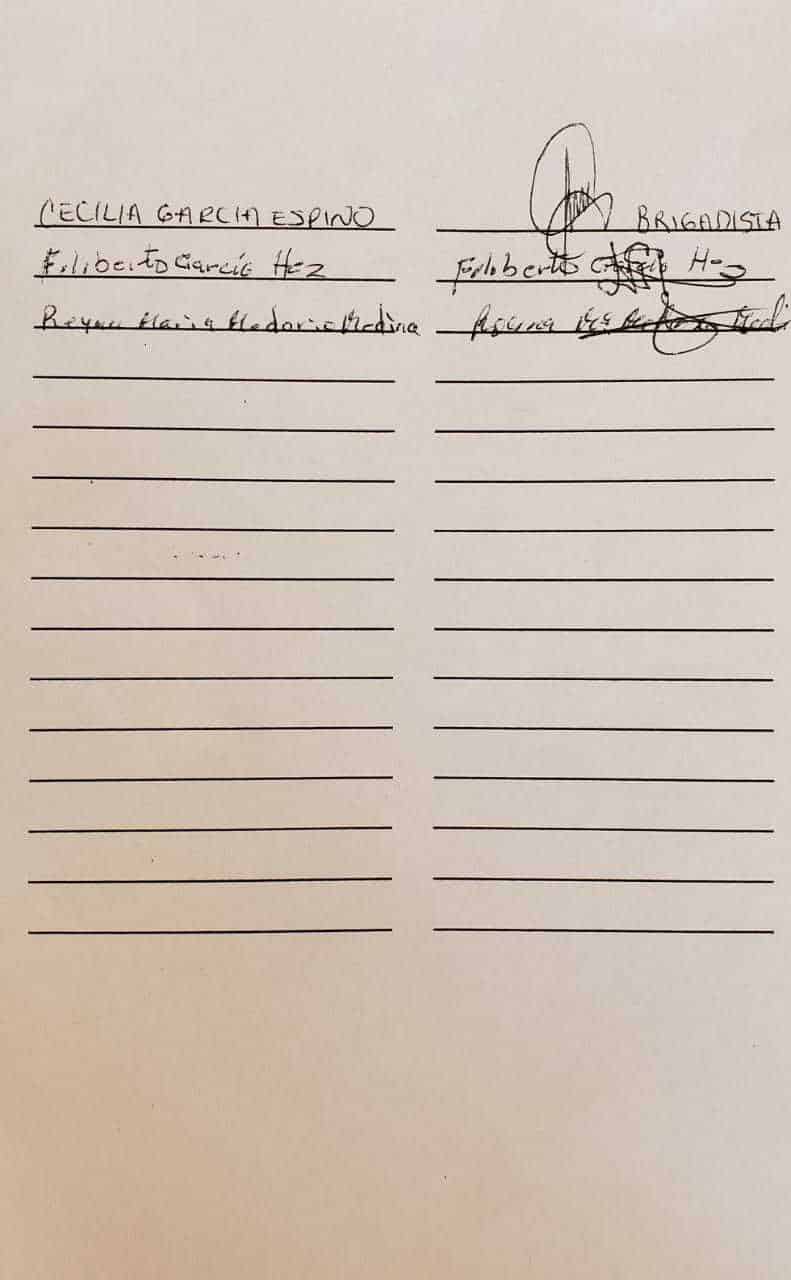 CECILIA GARCIA ESPINO BRIGADISTA
Filiberto García Hez Filiberto García Hez
Reyna Maria Medina Reyna Ma